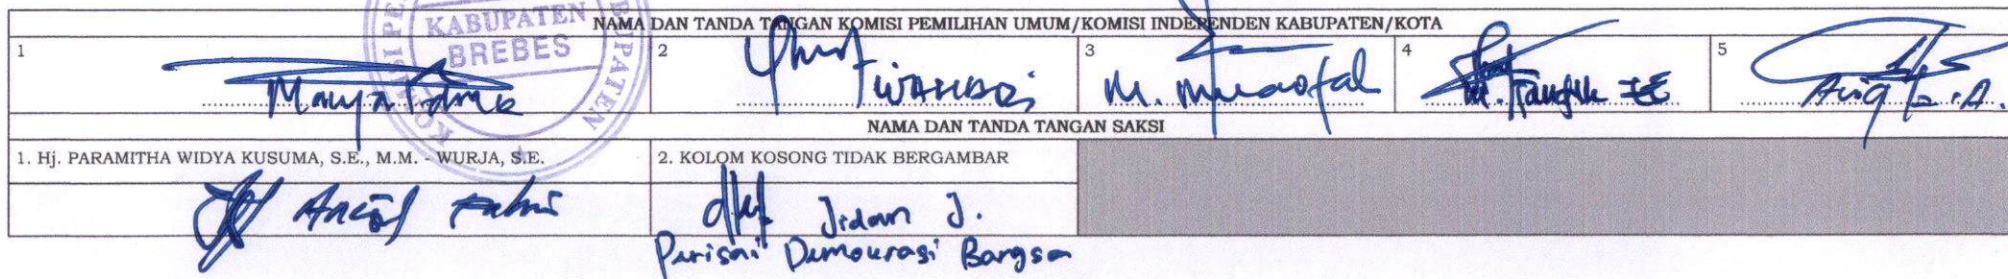 KOMISI PE
BUPATEN
KABUPATEN
BREBES
NAMA DAN TANDA TANGAN KOMISI PEMILIHAN UMUM/KOMISI INDEPENDEN KABUPATEN/KOTA
1 2 3 4 5
WAHADI M. Muaofal
NAMA DAN TANDA TANGAN SAKSI
1. Hj. PARAMITHA WIDYA KUSUMA, S.E., M.M. - WURJA, S.E. 2. KOLOM KOSONG TIDAK BERGAMBAR
Jidan J.
Perisai Demokrasi Bangsa